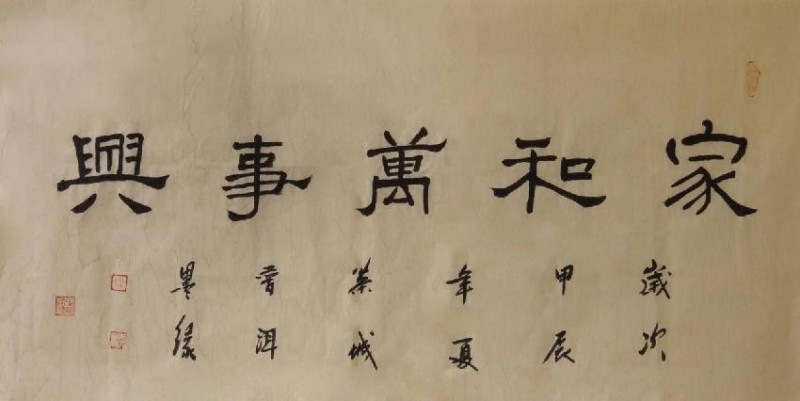 家和萬事興
歲次
甲辰
年夏
茶城
普洱
墨緣